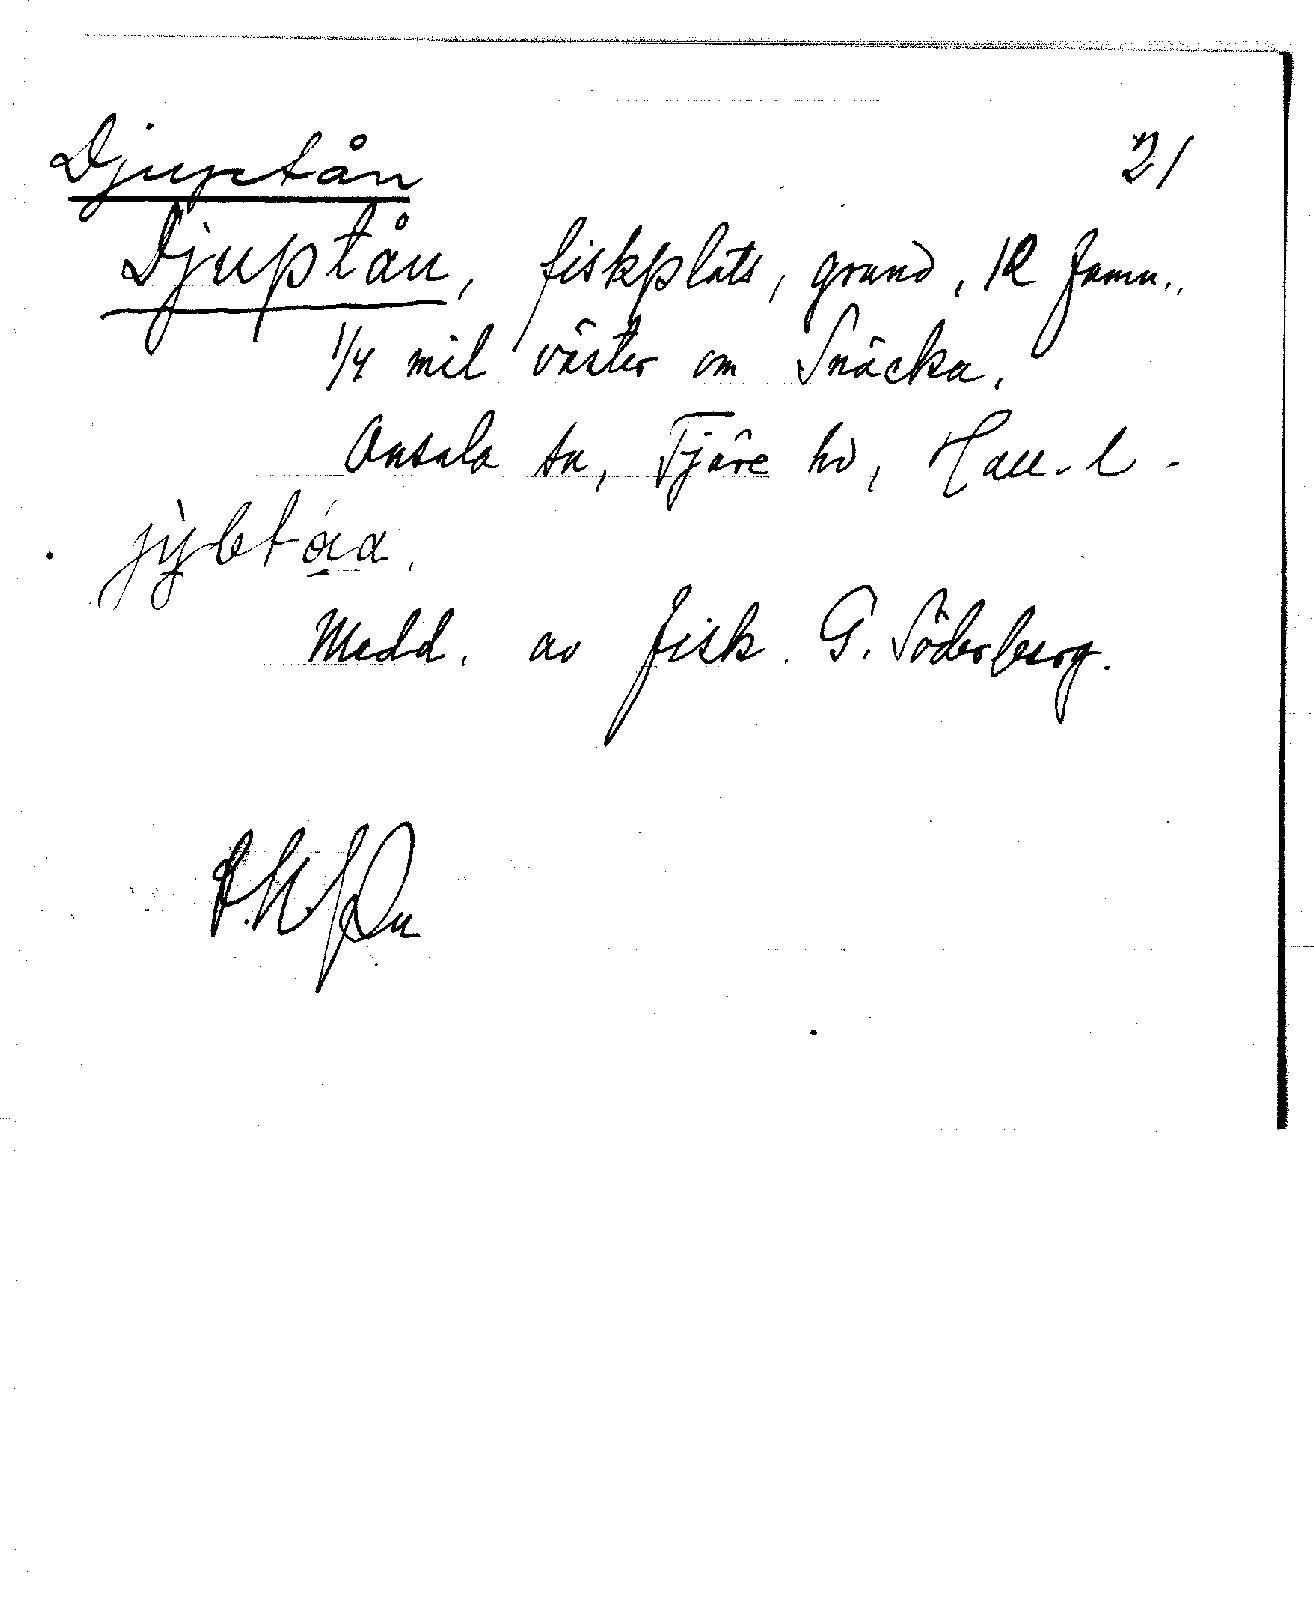 Djuptån 21
Djuptån, fiskplats, grund, 12 famn.,
1/4 mil väster om Snäcka.
Onsala sn, Fjäre hd, Hall. l.
Medd. av fisk. G. Söderberg.